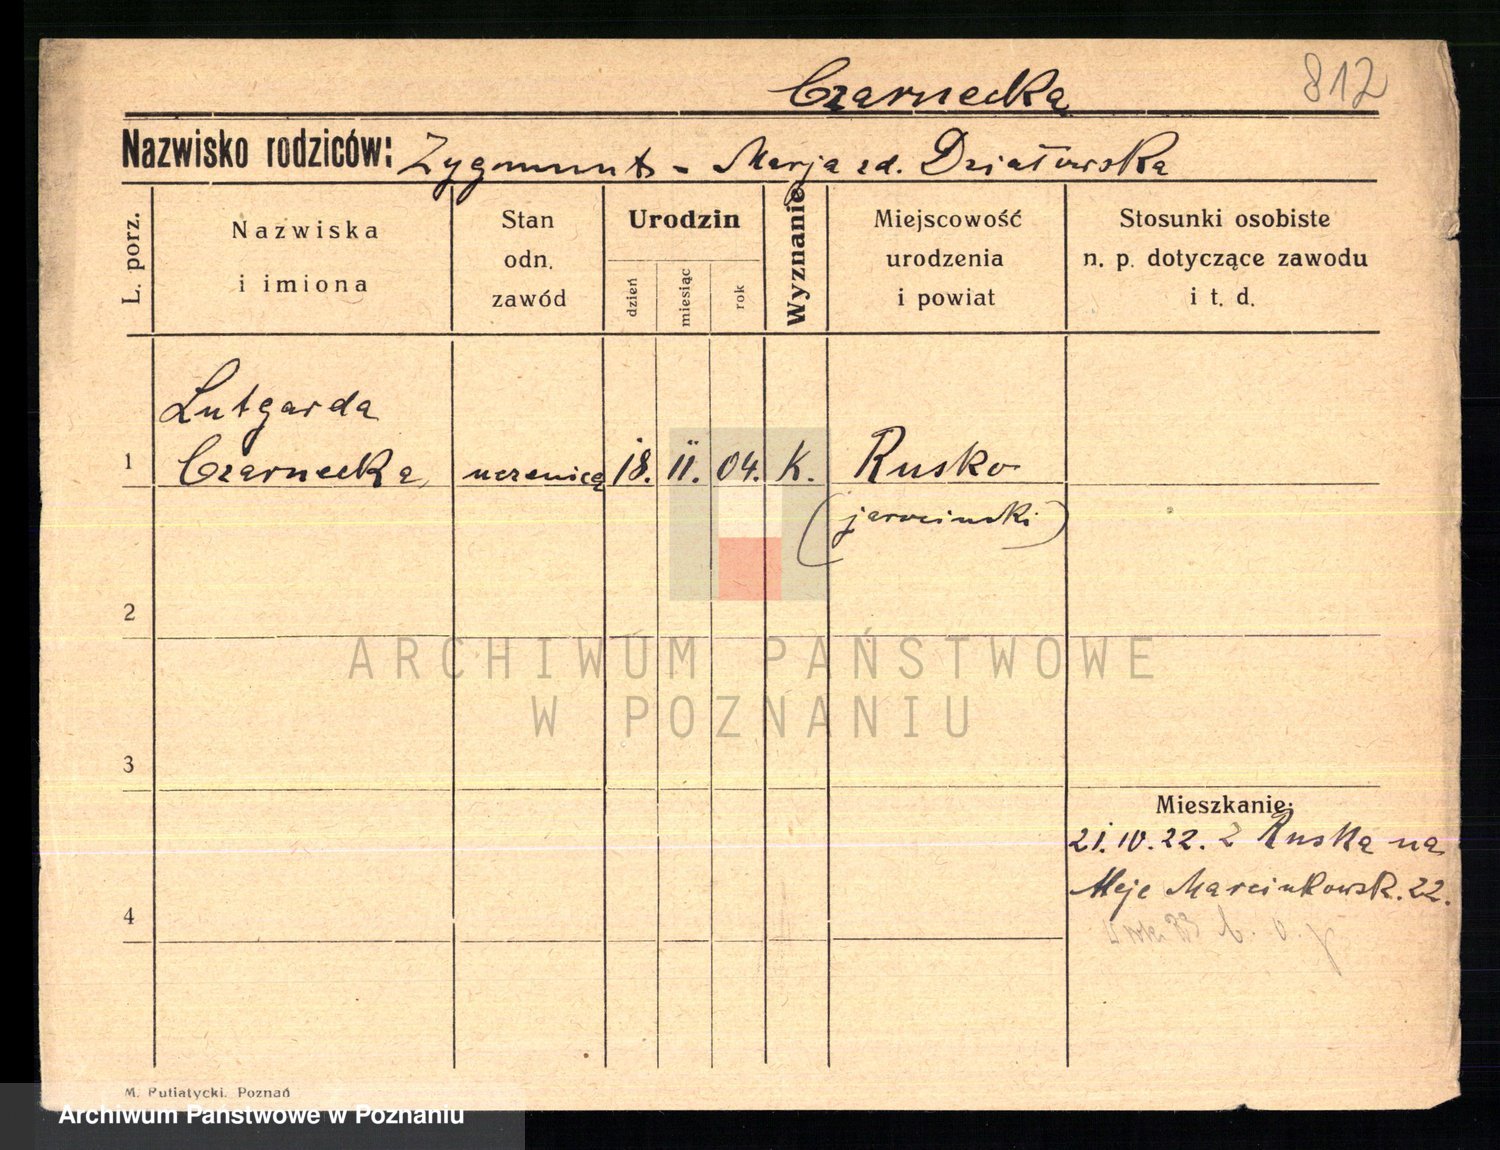 Czarnecka
812
Nazwisko rodziców: Zygmunt - Marja zd. Działowska
L. porz.
Nazwiska
i imiona
Stan
odn.
zawód
Urodzin
dzień
miesiąc
rok
Wyznanie
Miejscowość
urodzenia
i powiat
Stosunki osobiste
n. p. dotyczące zawodu
i t. d.
Lutgarda
1 Czarnecka, uczenica 18. II. 04. K. Rusko
(jarociński)
2
ARCHIWUM PAŃSTWOWE
W POZNANIU
3
Mieszkanie:
21. IV. 22. z Ruska na
Aleje Marcinkowsk. 22.
4
M. Putiatycki. Poznań
Archiwum Państwowe w Poznaniu